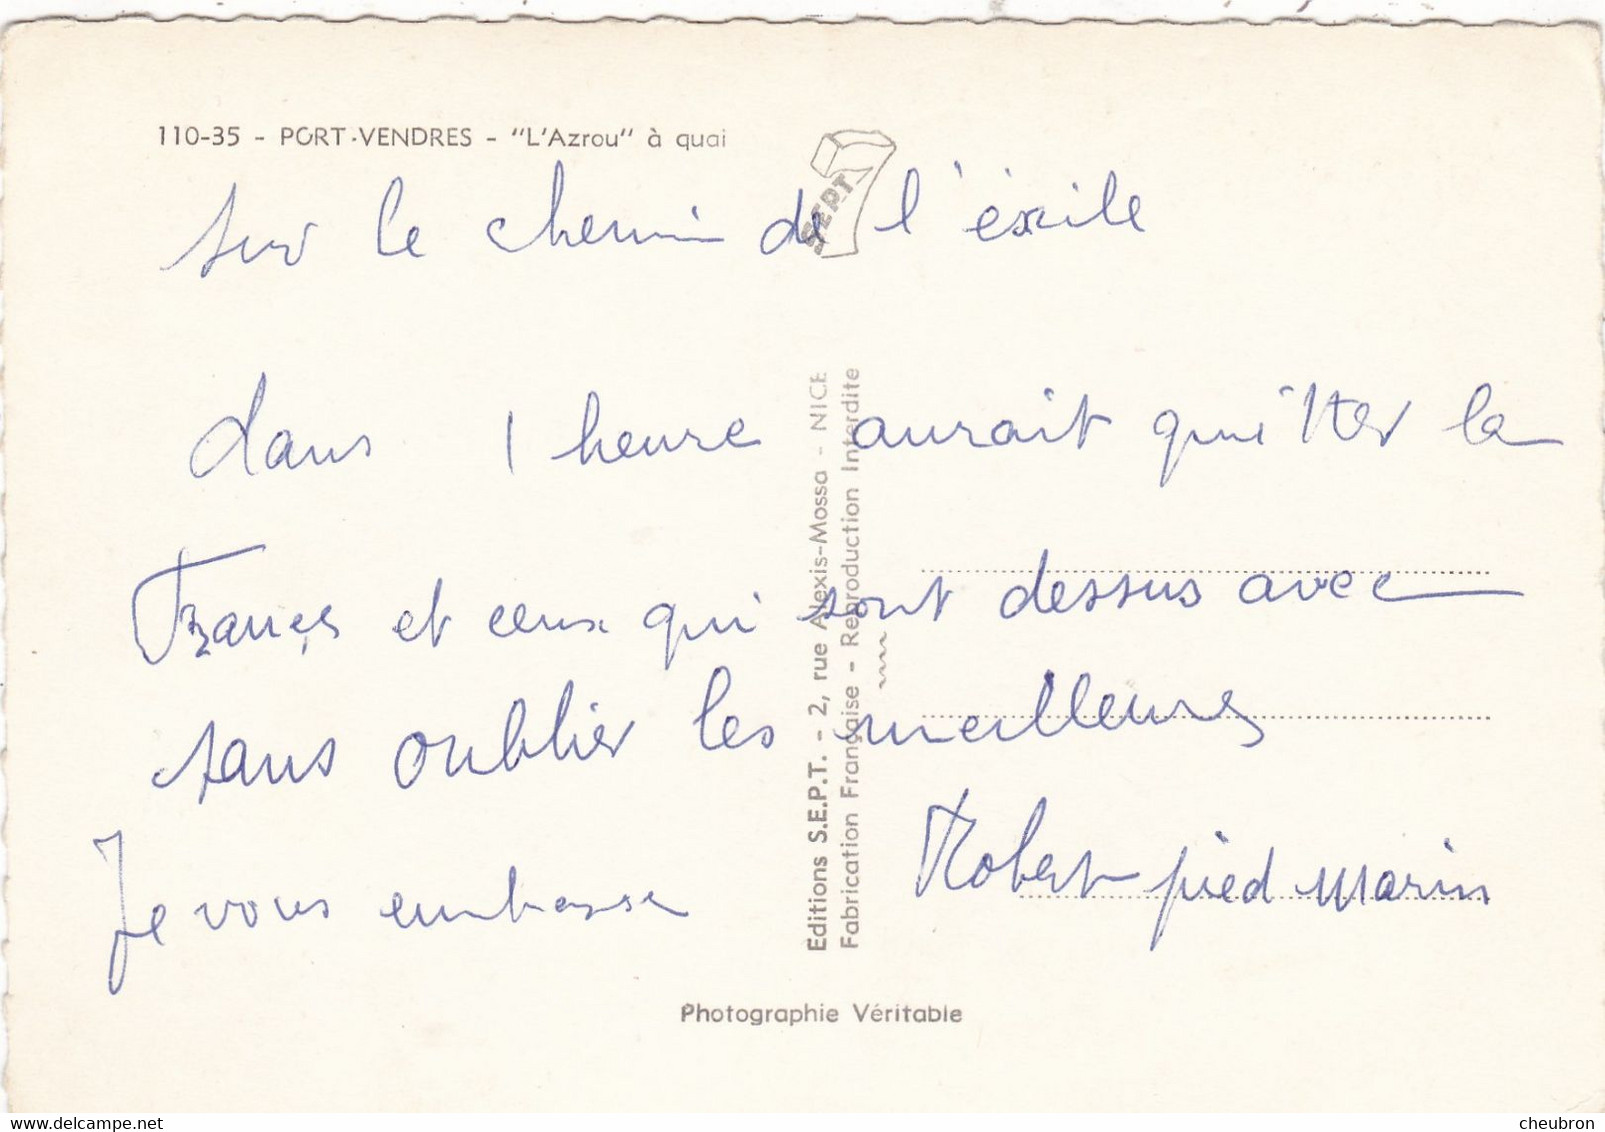 110-35 - PORT-VENDRES - "L'Azrou" à quai
SEPT
sur le chemin de l'éxile
dans 1 heure aurait quitter la
France et ceux qui sont dessus avec
sans oublier les meilleures
Je vous embrasse
Robert pied marin
Editions S.E.P.T. - 2, rue Alexis-Mossa - NICE
Fabrication Française - Reproduction Interdite
Photographie Véritable
cheubron